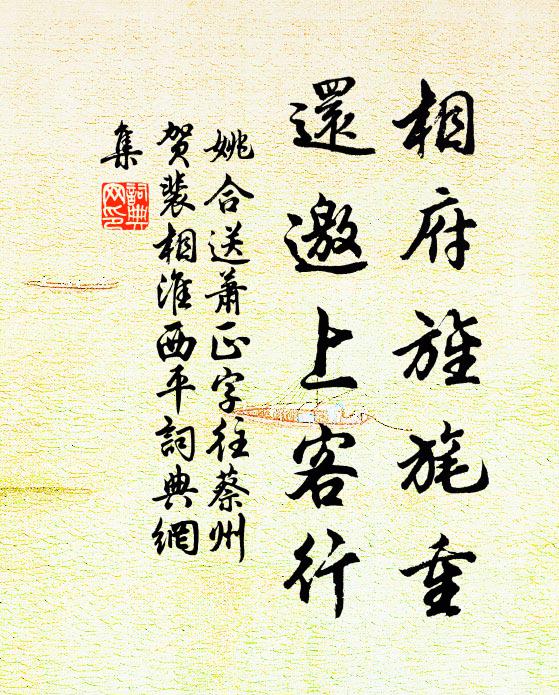 相府旌旄重
還邀上客行
姚合送萧正字往蔡州
贺裴相淮西平詞典網
集
詞典
网印